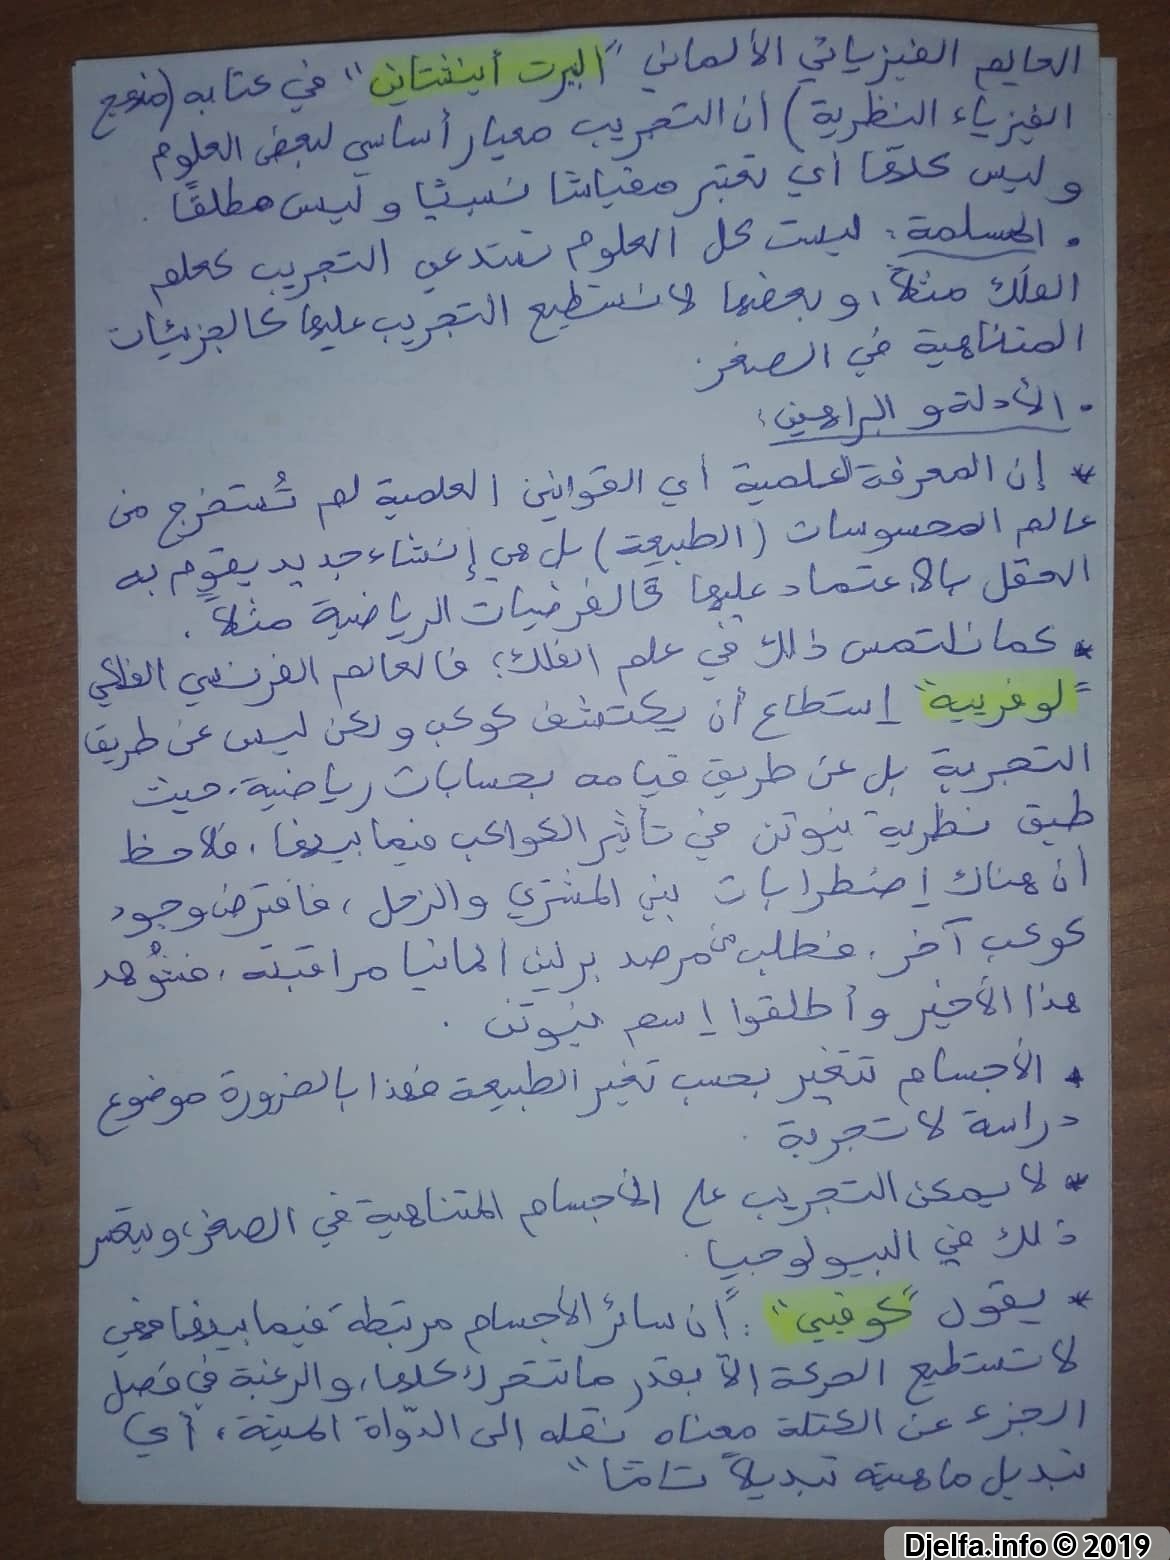 العالم الفيزيائي الألماني "ألبرت أينشتاين" في كتابه (منهج
الفيزياء النظرية) أن التجريب معيار أساسي لبعض العلوم
وليس كلها أي تعتبر مقياسا نسبيا وليس مطلقا.
. المسلمة: ليست كل العلوم تستدعي التجريب كعلم
الفلك مثلاً، وبعضها لا نستطيع التجريب عليها كالجزيئات
المتناهية في الصغر.
. الأدلة و البراهين:
* إن المعرفة العلمية أي القوانين العلمية لم تُستخرج من
عالم المحسوسات (الطبيعة) بل هي إنشاء جديد يقوم به
العقل بالاعتماد عليها كالفرضيات الرياضية مثلاً.
* كما نلتمس ذلك في علم الفلك؛ فالعالم الفرنسي الفلكي
"لوفرييه" إستطاع أن يكتشف كوكب ولكن ليس عن طريق
التجربة بل عن طريق قيامه بحسابات رياضية، حيث
طبق نظرية نيوتن في تأثير الكواكب فيما بينها، فلاحظ
أن هناك إضطرابات بين المشتري والزحل، فافترض وجود
كوكب آخر، فطلب من مرصد برلين ألمانيا مراقبته، فشُوهد
هذا الأخير وأطلقوا إسم نيوتن.
* الأجسام تتغير بحسب تغير الطبيعة فهذا بالضرورة موضوع
دراسة لا تجربة.
* لا يمكن التجريب على الأجسام المتناهية في الصغر، و
ذلك في البيولوجيا.
* يقول "كوفيي": "أن سائر الأجسام مرتبطة فيما بينها فهي
لا تستطيع الحركة إلا بقدر ما تتحرك كلها، والرغبة في فصل
الجزء عن الكتلة معناه نقله الى الدّواة الميتة، أي
تبديل ماهيته تبديلاً تاما"
Djelfa.info © 2019